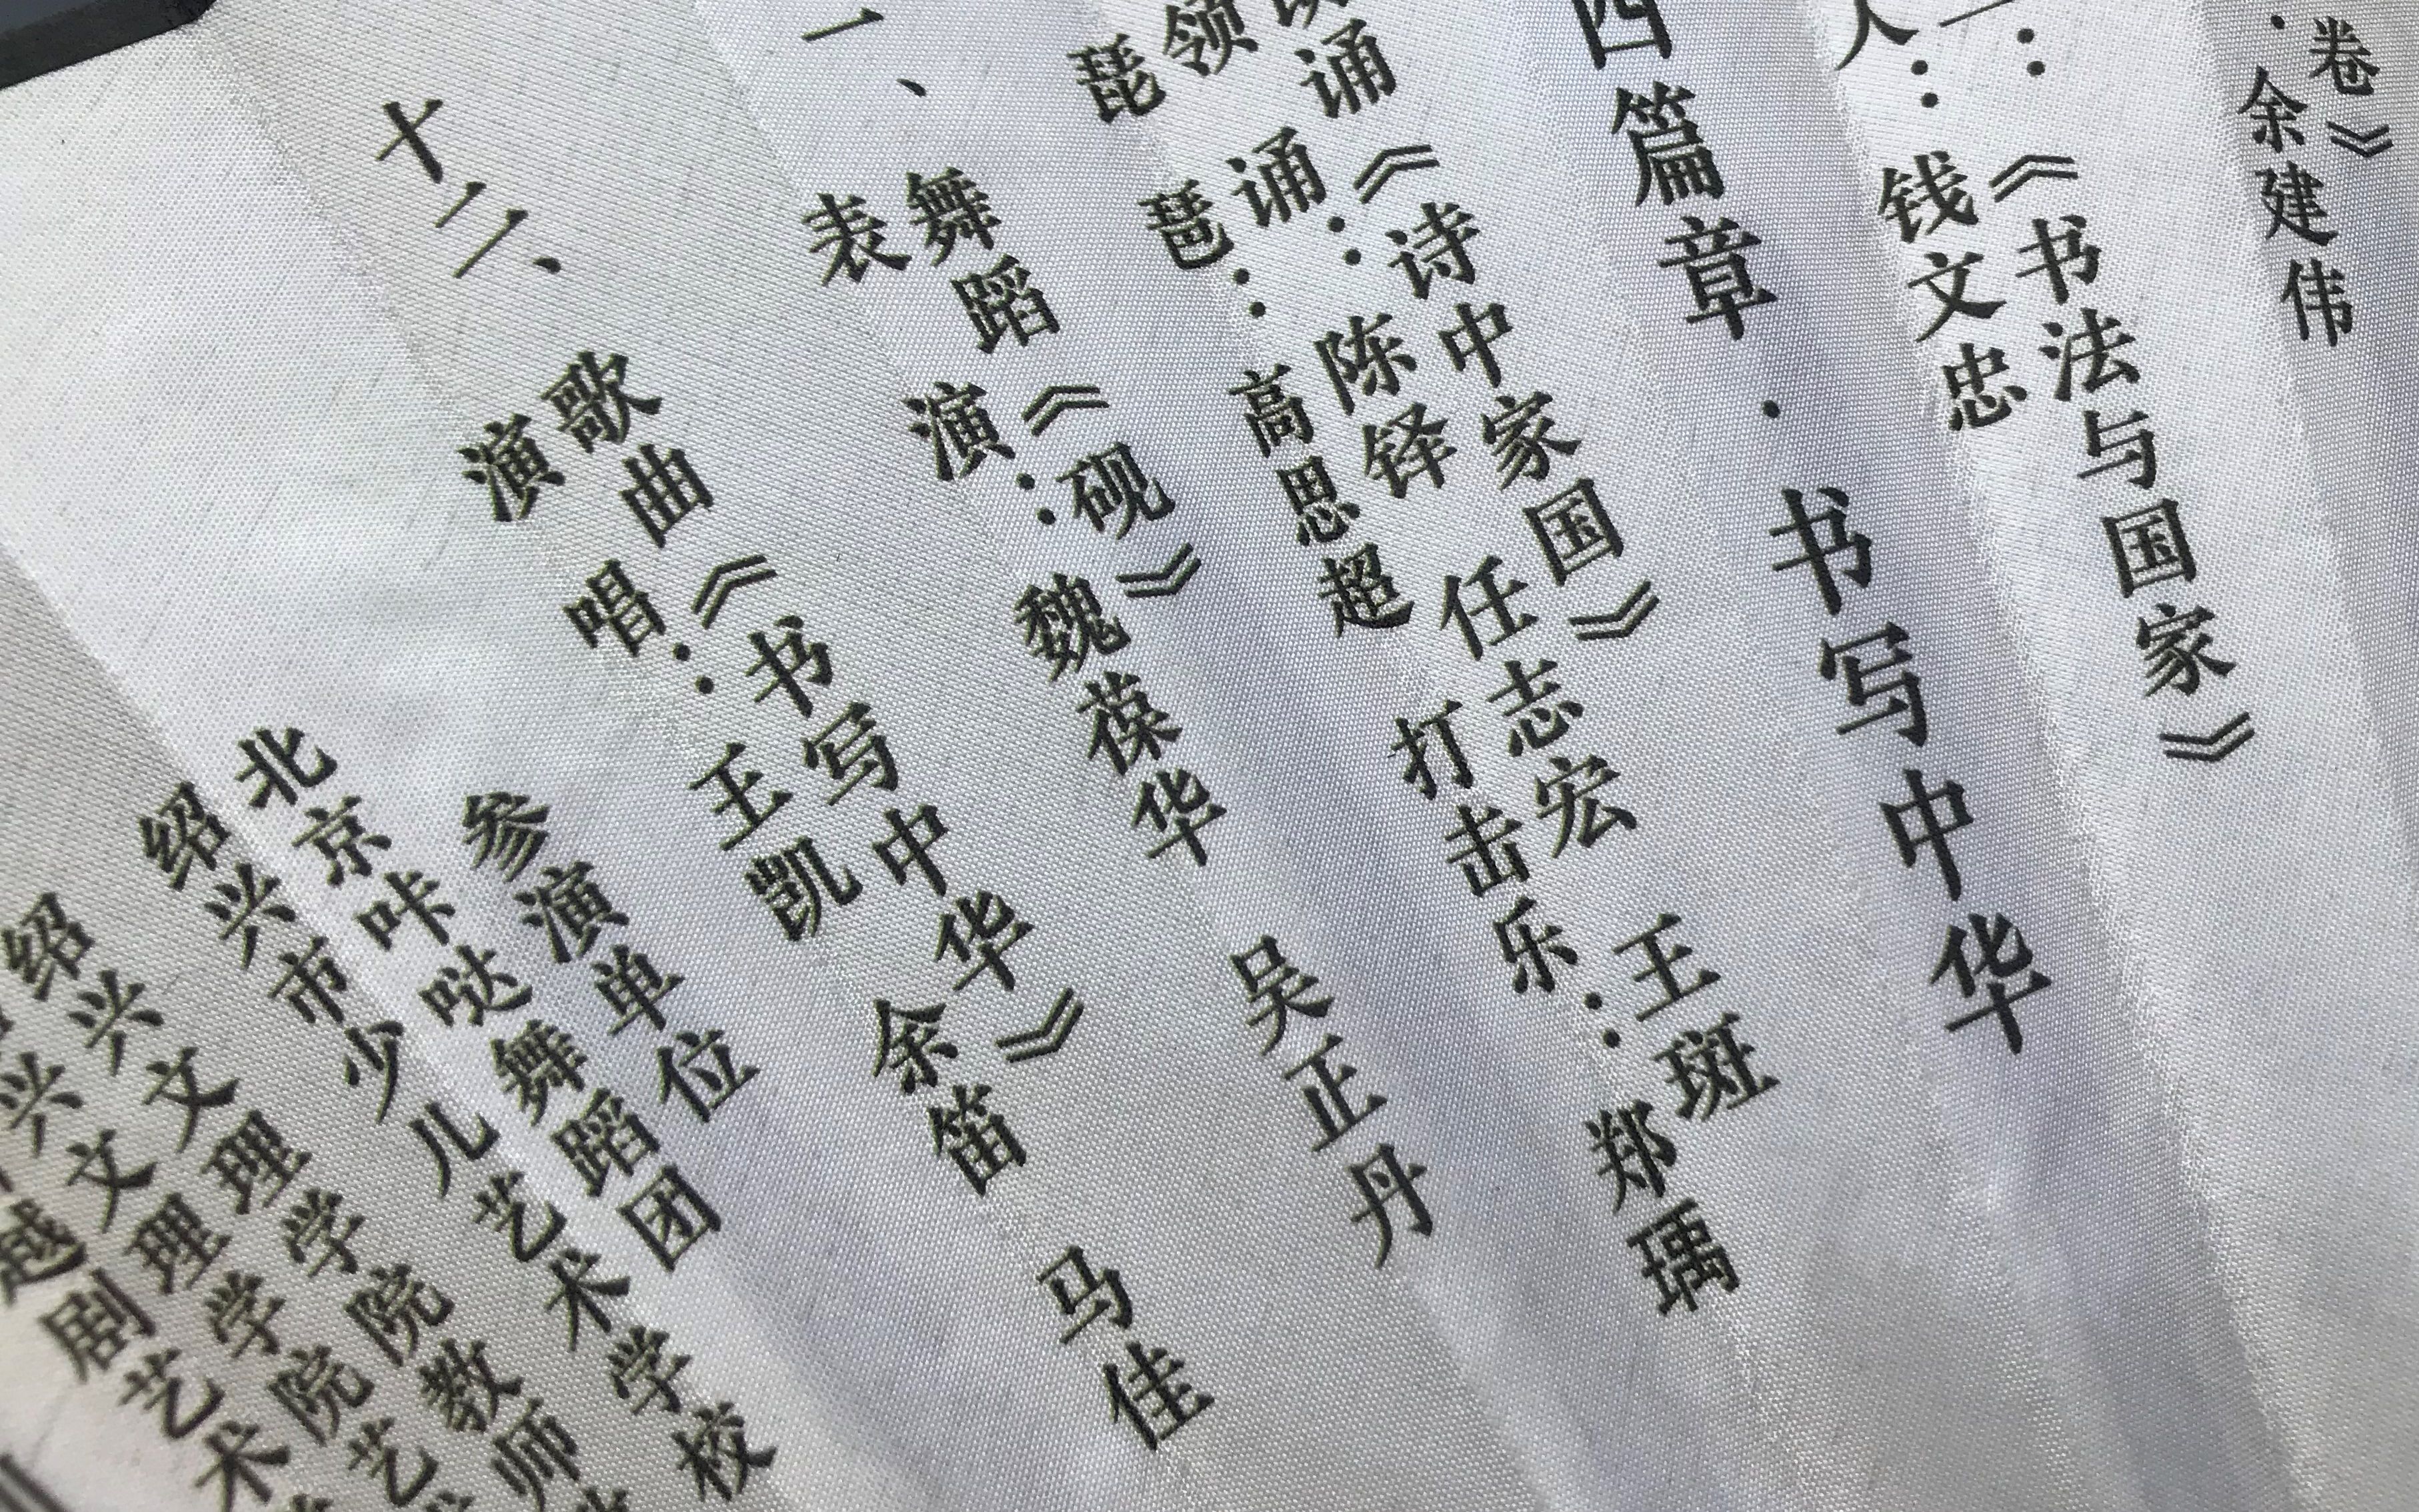 卷》
·余建伟
：《书法与国家》
人：钱文忠
四篇章·书写中华
诵《诗中家国》
领诵：陈铎 任志宏 王斑
琵琶：高思超 打击乐：郑瑀
一、舞蹈《砚》
表演：魏葆华 吴正丹
十二、歌曲《书写中华》
演唱：王凯 余笛 马佳
参演单位
北京咔哒舞蹈团
绍兴市少儿艺术学校
绍兴文理学院教师
兴文理学院艺
越剧艺术